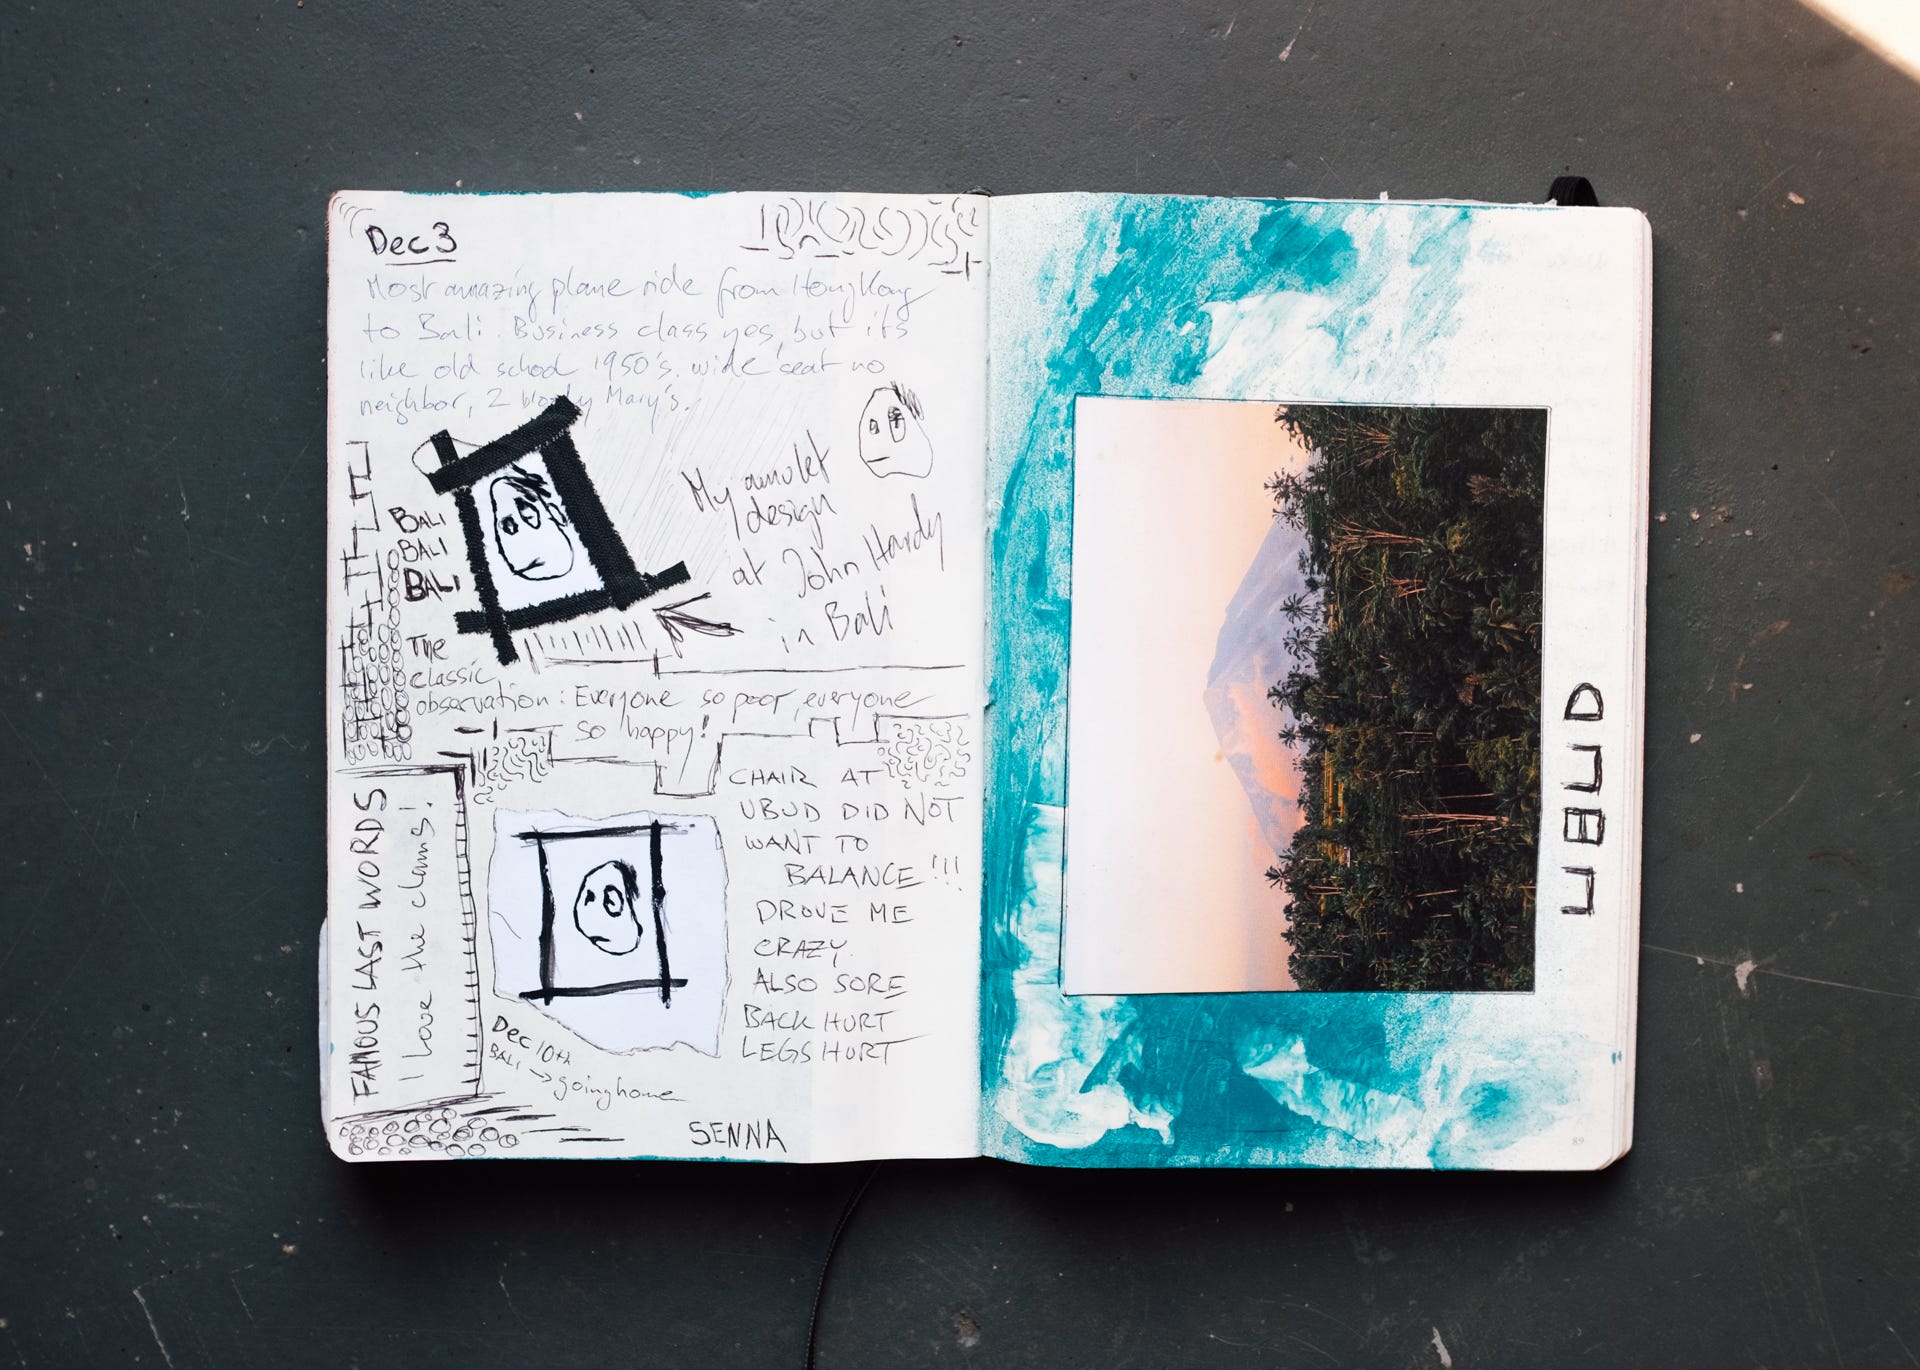 Dec 3
Most amazing plane ride from Hong Kong
to Bali. Business class yes, but it's
like old school 1950's. wide seat no
neighbor, 2 bloody Mary's.
My amulet
design
at John Hardy
in Bali
BALI
BALI
BALI
The
classic
observation: Everyone so poor, everyone
so happy!
FAMOUS LAST WORDS
I love the clams!
CHAIR AT
UBUD DID NOT
WANT TO
BALANCE!!!
DROVE ME
CRAZY.
ALSO SORE
BACK HURT
LEGS HURT
Dec 10th
BALI → going home
SENNA
UBUD
89